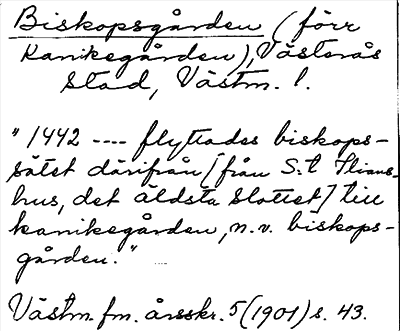 Biskopsgården (förr
Kanikegården), Västerås
stad, Västm. l.
"1442 ---- flyttades biskops-
sätet därifrån [från S:t Ilians-
hus, det äldsta slottet] till
kanikegården, n.v. biskops-
gården."
Västm. fm. årsskr. 5 (1901) s. 43.